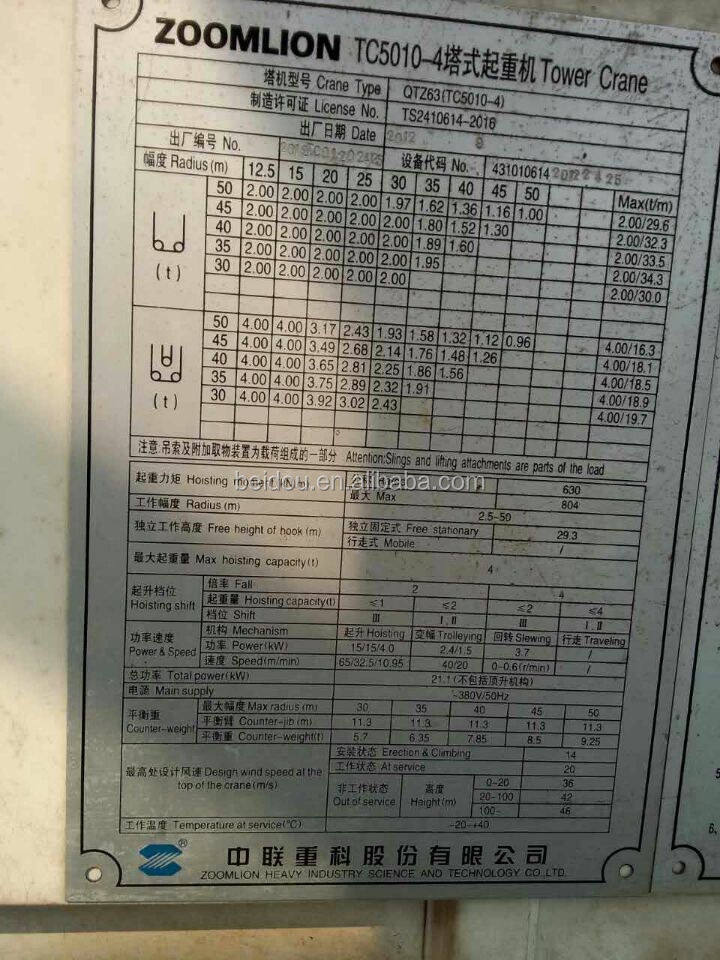 ZOOMLION TC5010-4塔式起重机 Tower Crane
塔机型号 Crane Type QTZ63(TC5010-4)
制造许可证 License No. TS2410614-2016
出厂日期 Date 2012 9
出厂编号 No. 设备代码 No. 431010614
幅度 Radius (m) 12.5 15 20 25 30 35 40 45 50 Max(t/m)
50 2.00 2.00 2.00 2.00 1.97 1.62 1.36 1.16 1.00 2.00/29.6
45 2.00 2.00 2.00 2.00 2.00 1.80 1.52 1.30 2.00/32.3
40 2.00 2.00 2.00 2.00 2.00 1.89 1.60 2.00/33.5
35 2.00 2.00 2.00 2.00 2.00 1.95 2.00/34.3
30 2.00 2.00 2.00 2.00 2.00 2.00/30.0
(t)
50 4.00 4.00 3.17 2.43 1.93 1.58 1.32 1.12 0.96 4.00/16.3
45 4.00 4.00 3.49 2.68 2.14 1.76 1.48 1.26 4.00/18.1
40 4.00 4.00 3.65 2.81 2.25 1.86 1.56 4.00/18.5
35 4.00 4.00 3.75 2.89 2.32 1.91 4.00/18.9
30 4.00 4.00 3.92 3.02 2.43 4.00/19.7
(t)
注意:吊索及附加取物装置为载荷组成的一部分 Attention:Slings and lifting attachments are parts of the load
beidou.en.alibaba.com
起重力矩 Hoisting moment 630
最大 Max 804
工作幅度 Radius (m) 2.5-50
独立工作高度 Free height of hook (m) 独立固定式 Free stationary 29.3
行走式 Mobile /
最大起重量 Max hoisting capacity(t) 4
起升档位 Hoisting shift 倍率 Fall 2 4
起重量 Hoisting capacity(t) ≤1 ≤2 ≤2 ≤4
档位 Shift Ⅲ Ⅰ,Ⅱ Ⅲ Ⅰ,Ⅱ
功率速度 Power & Speed 机构 Mechanism 起升 Hoisting 变幅 Trolleying 回转 Slewing 行走 Traveling
功率 Power(kW) 15/15/4.0 2.4/1.5 3.7 /
速度 Speed(m/min) 65/32.5/10.95 40/20 0~0.6(r/min) /
总功率 Total power(kW) 21.1(不包括顶升机构)
电源 Main supply ~380V/50Hz
平衡重 Counter-weight 最大幅度 Max radius (m) 30 35 40 45 50
平衡臂 Counter-jib (m) 11.3 11.3 11.3 11.3 11.3
平衡重 Counter-weight(t) 5.7 6.35 7.85 8.5 9.25
最高处设计风速 Design wind speed at the top of the crane(m/s) 安装状态 Erection & Climbing 14
工作状态 At service 20
非工作状态 Out of service 高度 Height(m) 0~20 36
20~100 42
100~ 46
工作温度 Temperature at service(℃) -20~+40
中联重科股份有限公司
ZOOMLION HEAVY INDUSTRY SCIENCE AND TECHNOLOGY CO.,LTD.